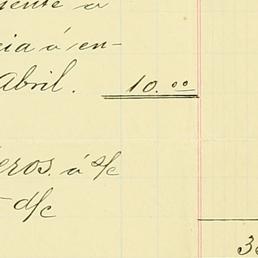 á
cia á en-
Abril. 10.00
eros. á s/c
d/c
3